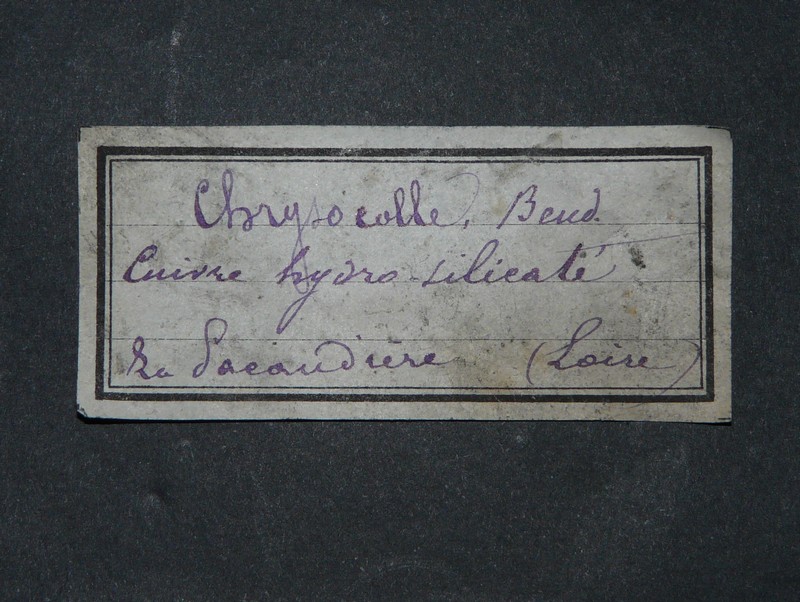 Chrysocolle, Beud.
Cuivre hydro-silicaté
La Pacaudiere (Loire)